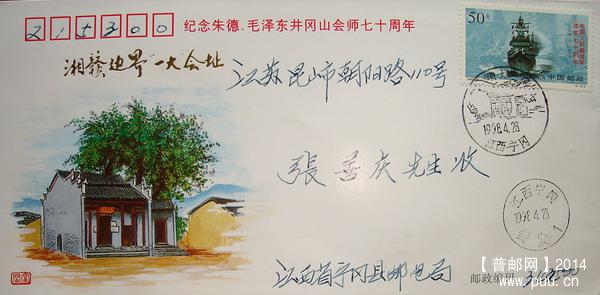 215300
纪念朱德、毛泽东井冈山会师七十周年
50分
中国邮政
湘赣边界"一大"会址
江苏昆山市朝阳路110号
1998.4.28
江西宁冈
张善庆先生收
江西宁冈
1998.4.28
江西省宁冈县邮电局
邮政编码
【普邮网】2014
www.puu.cn